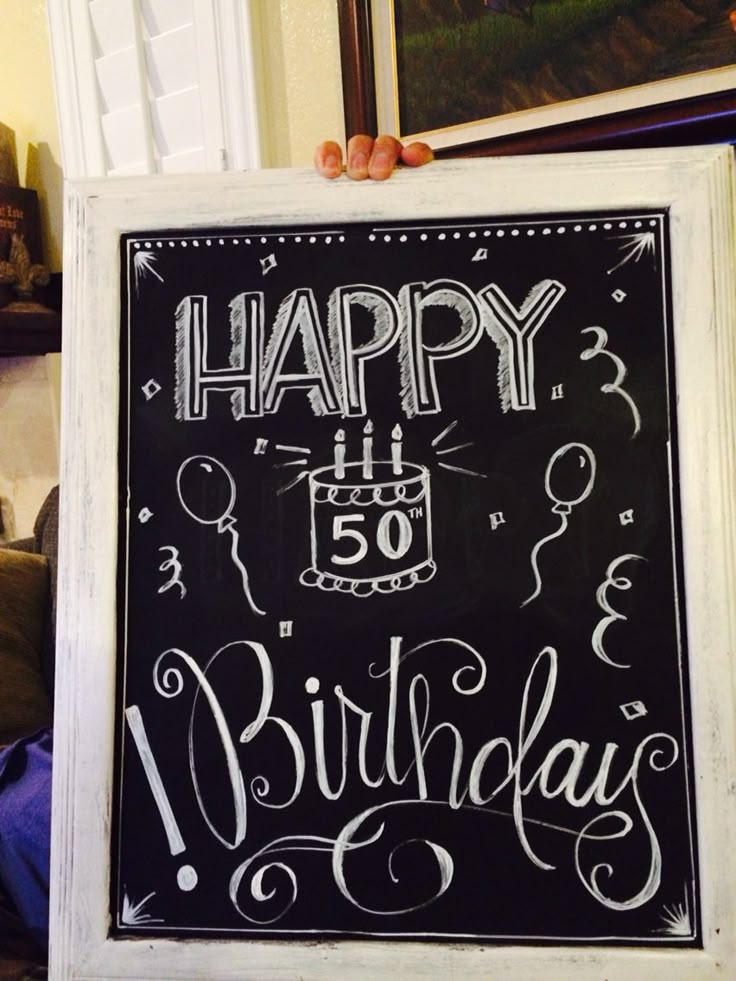 HAPPY
50TH
! Birthday